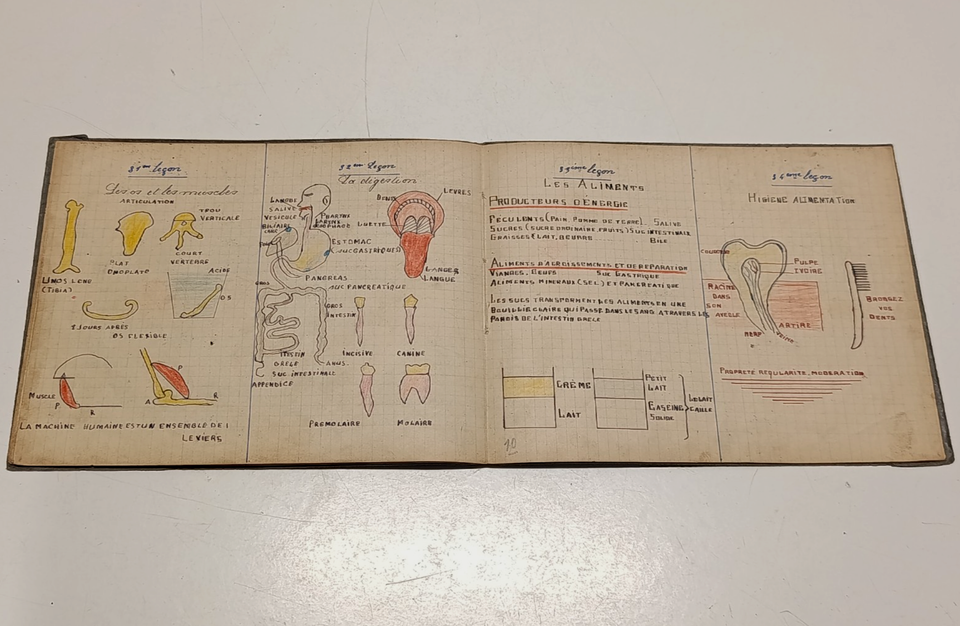 31ème leçon
Les os et les muscles
ARTICULATION
TROU
VERTICALE
PLAT
OMOPLATE
COURT
VERTEBRE
UN OS LONG
(TIBIA)
ACIDE
OS
2 JOURS APRÈS
OS FLEXIBLE
MUSCLE
P
R
P
A
R
LA MACHINE HUMAINE EST UN ENSEMBLE DE
LEVIERS
32ème leçon
La digestion
SALIVE
VESICULE
BILIAIRE
PHARYNX
ESTOMAC
(SUC GASTRIQUE)
PANCREAS
SUC PANCREATIQUE
GROS
INTESTIN
GRELE
ANUS
SUC INTESTINALE
APPENDICE
LEVRES
LUETTE
LANGUE
INCISIVE
CANINE
PREMOLAIRE
MOLAIRE
33ème leçon
LES ALIMENTS
PRODUCTEURS D'ENERGIE
FECULENTS (PAIN, POMME DE TERRE) SALIVE
SUCRES (SUCRE ORDINAIRE, FRUITS) SUC INTESTINALE
GRAISSES (LAIT, BEURRE BILE
ALIMENTS D'ACROISSEMENTS ET DE REPARATION
VIANDES, OEUFS SUC GASTRIQUE
ALIMENTS MINERAUX (SEL) ET PANCREATIQUE
LES SUCS TRANSPORMENT LES ALIMENTS EN UNE
BOUILLIE CLAIRE QUI PASSE DANS LE SANG A TRAVERS LES
PAROIS DE L'INTESTIN GRELE
CRÈME
LAIT
PETIT
LAIT
CASEINE
SOLIDE
LE LAIT
CAILLE
34ème leçon
HIGIENE ALIMENTATION
PULPE
IVOIRE
RACINE
DANS
SON
ALVEOLE
NERF
VEINE
ARTÈRE
BROSSEZ
VOS
DENTS
PROPRETÉ RÉGULARITÉ, MODERATION